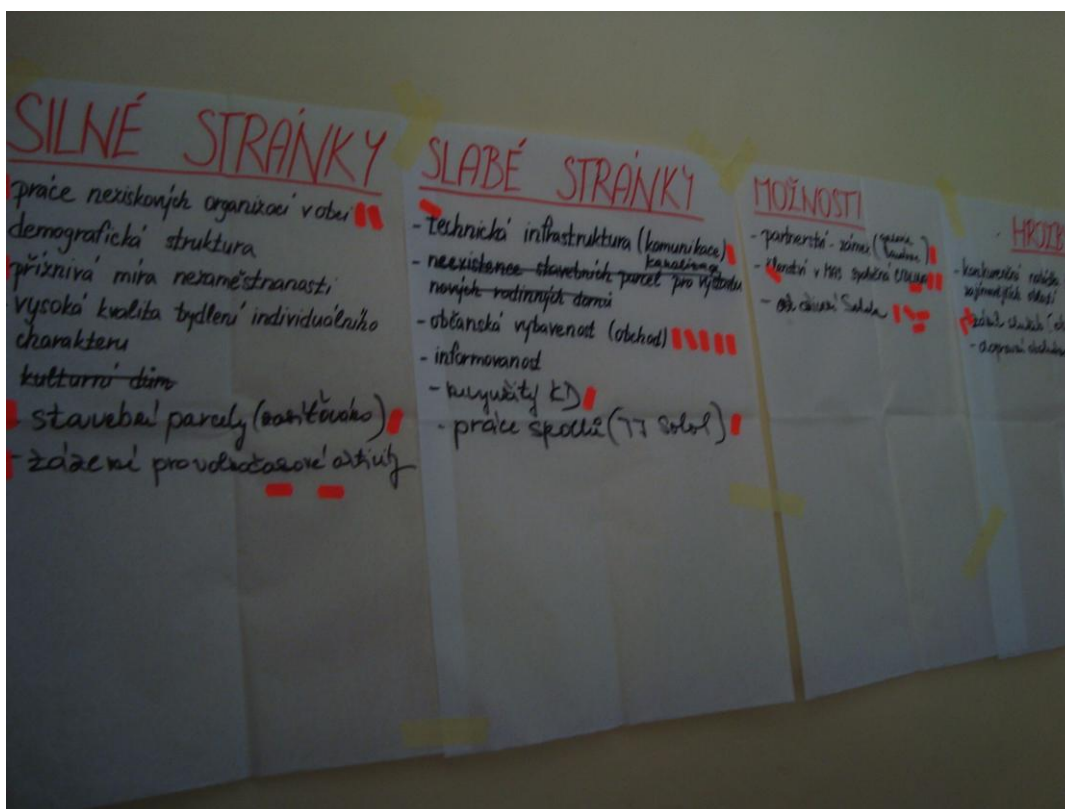 SILNÉ STRÁNKY
práce neziskových organizací v obci
demografická struktura
příznivá míra nezaměstnanosti
vysoká kvalita bydlení individuálního
charakteru
kulturní dům
- stavební parcely
- zázemí pro volnočasové aktivity
SLABÉ STRÁNKY
- technická infrastruktura (komunikace)
kanalizace
- neexistence stavebních parcel pro výstavbu
nových rodinných domů
- občanská vybavenost (obchod)
- informovanost
- nevyužitý KD
- práce spolků (TJ Sokol)
MOŽNOSTI
- partnerství - zámek
- členství v MAS společná
Sokola
HROZB
- konkurenční nabídka
zajímavějších oblastí
- dopravní